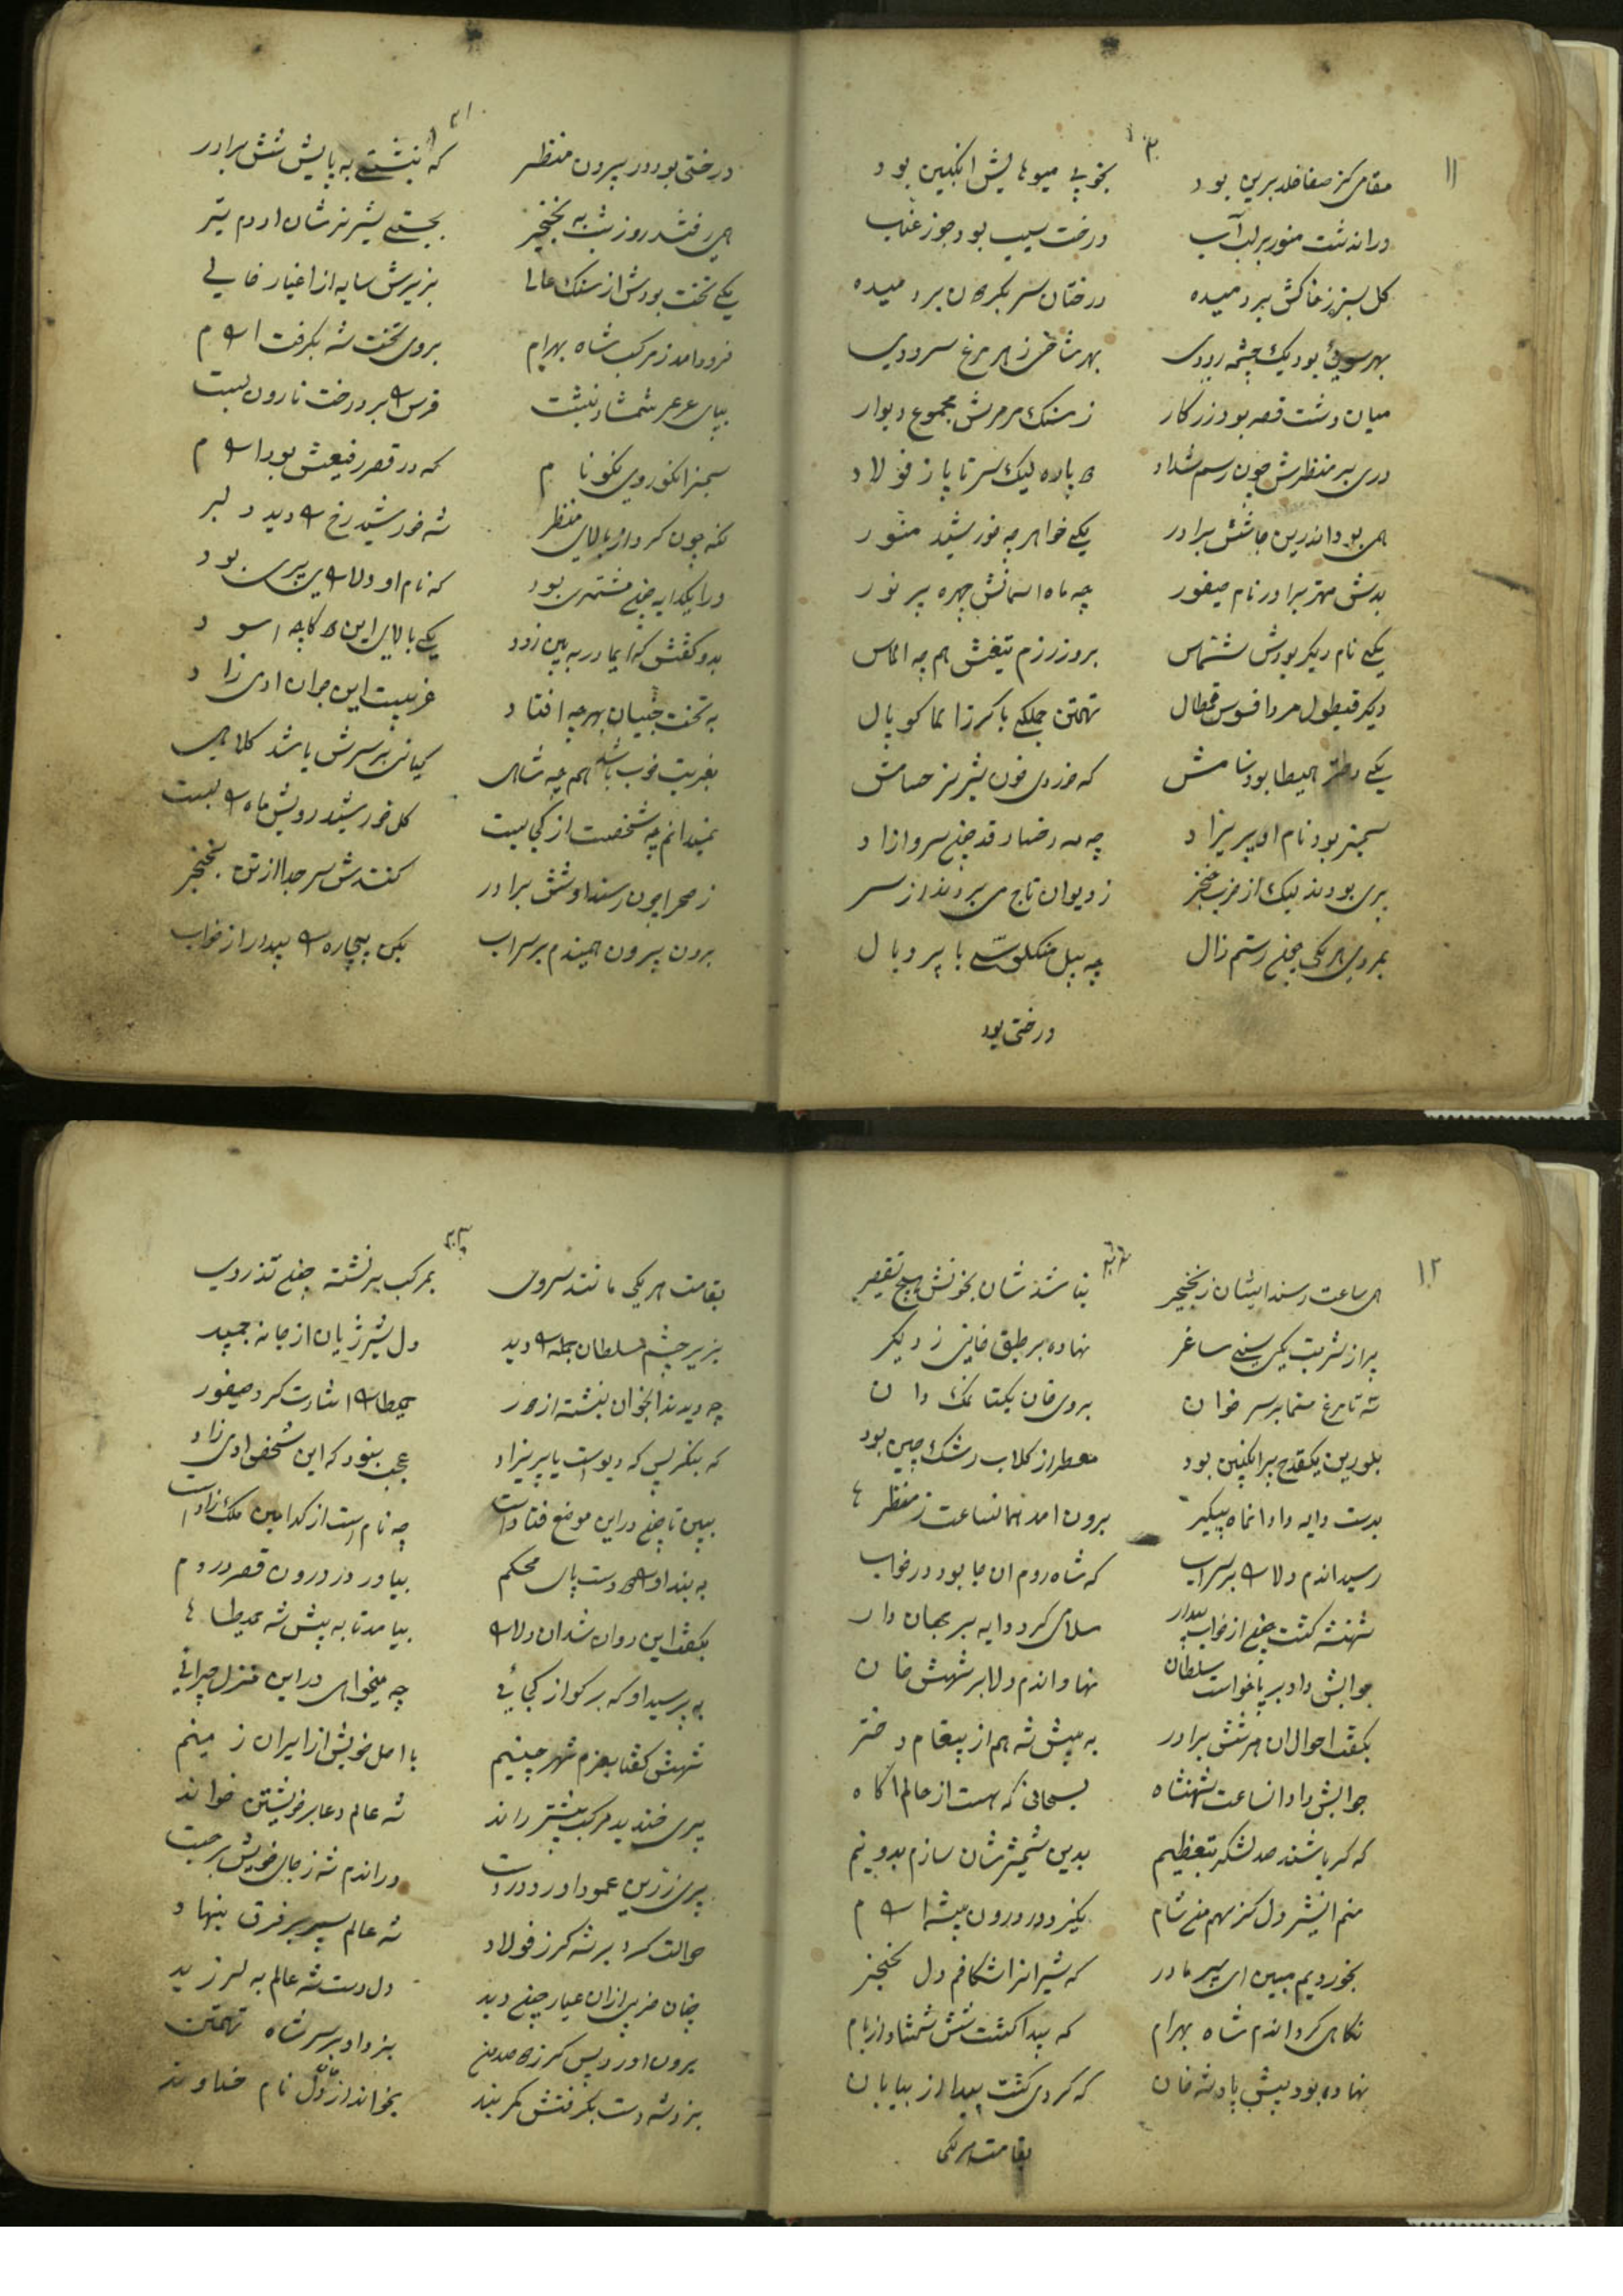 ۱۱
مقامی کز صفا خلد برین بود بخوبی میوهایش انکبین بود
دران دشت منور بر لب آب درخت سیب بود جوز عناب
کل سبز ز خاکش بردمیده درختان سر بکردون بر دمیده
بهر سوی بود یک چشمه رودی بهر شاخی ز هر مرغ سرودی
میان دشت قصر بود زرکار ز سنک مرمرش مجموع دیوار
دری بر منظرش چون رسم شداد لیک سر تا پا ز فولاد
همی بود اندرین جا شش برادر یکی خواهر چه خورشید منور
بدش مهتر برادر نام صیفور چه ماه اسمانش چهره پر نور
یکی نام دیکر بودش شماس بروز رزم تیغش هم چه الماس
دیکر قنطول تهمتن جملکی با کرز کوپال
یکی بود نامش که خوردی خون شیر نر حسامش
سمنبر بود نام او پریزاد چه مه رخسار قد چون سرو ازاد
پری بودند لیک از ضرب خنجر ز دیوان تاج می بردند از سر
بمردی هر یکی چون رستم زال چه پیل با پر و بال
درختی بود
درختی بود در بیرون منظر که بنشستی به پایش شش برادر
همی رفتند روز شب به نخجیر بجستی شیر نر شان از دم تیر
یکی تخت بودش از سنک عالی بزیرش سایه از اغیار خالی
فرود امد ز مرکب شاه بهرام بروی تخت شه بکرفت ارام
بپای عرعر شمشاد بنشست فرس را بر درخت نارون بست
سمنبر انکو روی نکو نام که در قصر رفیعش بود ارام
نکه چون کرد از بالای منظر شه خورشید رخ را دید دلبر
که نام او دلارای پری بود
بدو کفتش که ایمادر ببین زود یکی بالای این
به تخت بهر چه افتاد غریبست این جوان ادمی زاد
بغربت خوب باشد هم چه شاهی کیانی بر سرش باشد کلاهی
نمیدانم چه شخصست از کجا یست کل خورشید رویش ماه را بست
ز صحرا چون رسند او شش برادر کنندش سر جدا از تن بخنجر
برون بیرون همیندم بر سر اب بکن بیچاره را بیدار از خواب
۱۲
همی ساعت رسند ایشان ز نخجیر نباشد شان بخونش هیچ تقصیر
پر از شربت یکی سینی ساغر نهاده بر طبق خانی ز دیکر
سه تا مرغ بر سر خوان بروی خان یکتا نمک دان
بلورین یکقدح پر انکبین بود معطر از کلاب رشک چین بود
بدست دایه داد انماه پیکر برون امد همانساعت ز منظر
رسید اندم دلارا بر سر اب که شاه روم ان جا بود در خواب
شهنشه کشت چون از خواب بیدار سلامی کرد دایه بر جهان دار
جوابش داد بر پا خواست سلطان نهاد اندم دلا بر شهش خان
بکفت احوال ان هر شش برادر به پیش شه هم از پیغام دختر
جوابش داد انساعت شهنشاه بسبحانی که هست از حالم اکاه
که کر باشند صد لشکر بتعظیم بدین شمشیر شان سازم بدو نیم
منم انشیر دل کز سهم من شام نکیرد در درون بیشه ارام
بخوردیم مبین ای پیر مادر که شیرانرا شکافم دل بخنجر
نکاهی کرد اندم شاه بهرام که پیدا کشت شش شمشاد از بام
نهاده بود پیش پادشه خان که کردی کشت پیدا از بیابان
بقامت هر یکی
بقامت هر یکی مانند سروی بمرکب بر نشسته چون تذروی
بزیر چشم سلطان جمله را دید دل شیر ژیان از جا نه جمبید
چه دیدند انجوان بنشسته از دور اشارت کرد صیفور
که بنکر پس که دیوست یا پریزاد عجب نبود که این شخص ادمی زاد
ببین تا چون در این موضع فتادست چه نامست از کدامین ملک زادست
به بند او را دو دست پای محکم بیاور در درون قصر در دم
بکفت این روان شد ان دلارا بیامد تا به پیش شه
به پرسید او که بر کو از کجائی چه میخواهی در این منزل چرائی
شهش کفتا بعزم شهر چینیم با اصل خویش از ایران زمینم
پری خندید مرکب پیشتر راند شه عالم دعا بر خویشتن خواند
پری زرین عمود اورد در دست در اندم شه ز جای خویش برجست
حوالت کرد بر شه کرز فولاد شه عالم سپر بر فرق بنهاد
چنان ضربی از ان عیار چون دید دل دست شه عالم به لرزید
برون اورد پس کرز بزد او بر سر شاه تهمتن
بزد شه دست بکرفتش کمربند بخواند از دل نام خداوند